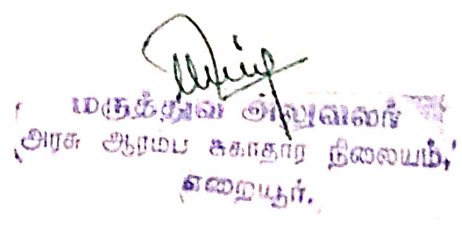 மருத்துவ அலுவலர்
அரசு ஆரம்ப சுகாதார நிலையம்,
எறையூர்.